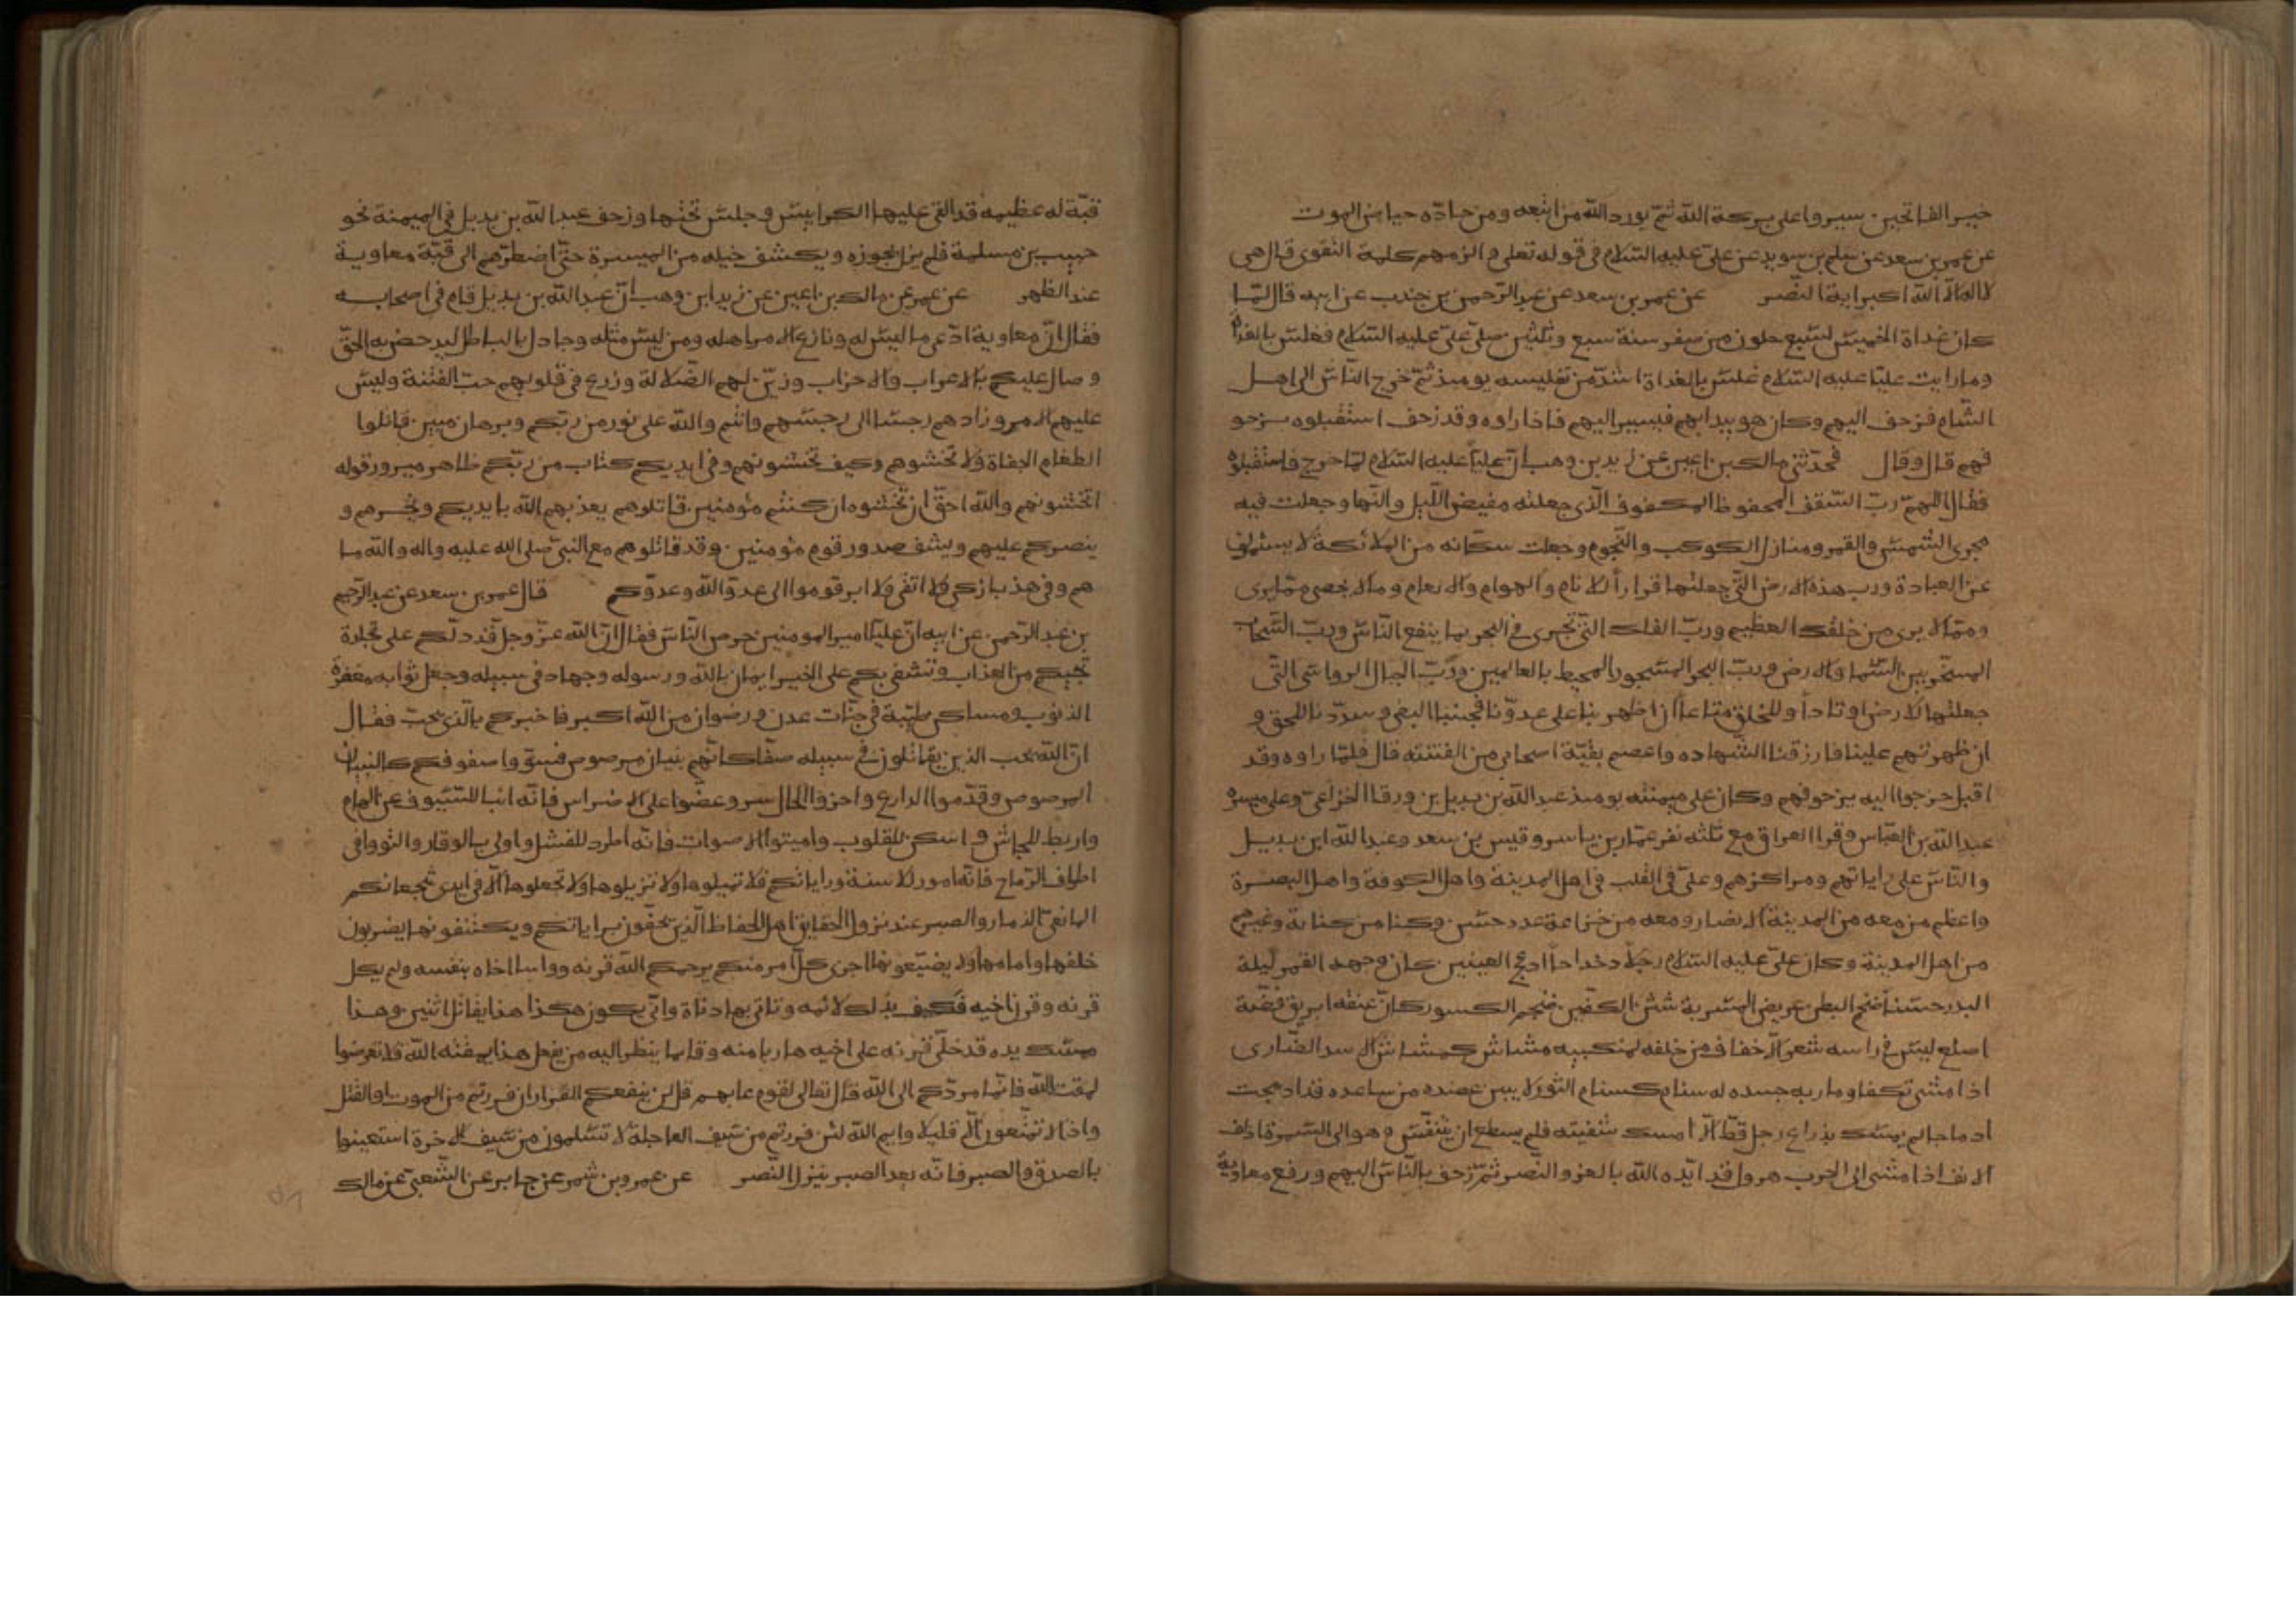 خير الفاتحين سيروا على بركة الله ثم يورد الله من اتبعه ومن حاده حياض الموت
عن عمر بن سعد عن سلم بن سويد عن علي عليه السلام في قوله تعلى والزمهم كلمة التقوى قال هي
لا اله الا الله الله اكبر اية النصر عن عمر بن سعد عن عبد الرحمن بن جندب عن ابيه قال لما
كان غداة الخميس لسبع خلون من صفر سنة سبع وثلثين صلى علي عليه السلام فغلس بالغداة
وما رايت عليا عليه السلام غلس بالغداة اشد من تغليسه يومئذ ثم خرج الناس الى اهل
الشام فزحف اليهم وكان هو يبدابهم فيسير اليهم فاذا راوه وقد زحف استقبلوه بزحو
فهم قال وقال فحدثني مالك بن اعين عن زيد بن وهب ان عليا عليه السلام لما خرج فاستقبلوه
فقال اللهم رب السقف المحفوظ المكفوف الذي جعلته مغيض الليل والنها وجعلت فيه
مجرى الشمس والقمر ومنازل الكوكب والنجوم وجعلت سكانه من الملائكة لا يسئمون
عن العبادة ورب هذه الارض التي جعلتها قرارا للانام والهوام والانعام وما لا يحصى مما يرى
ومما لا يرى من خلقك العظيم ورب الفلك التي تجرى في البحر بما ينفع الناس ورب السحاب
المسخر بين السما والارض ورب البحر المسجور المحيط بالعالمين ورب الجبال الرواسي التي
جعلتها للارض اوتادا وللخلق متاعا ان اظهرتنا على عدونا فجنبنا البغي وسددنا للحق و
ان ظهرتهم علينا فارزقنا الشهاده واعصم بقية اصحابي من الفتنته قال فلما راوه وقد
اقبل خرجوا اليه بزحوفهم وكان على ميمنته يومئذ عبد الله بن بديل بن ورقا الخزاعي وعلى ميسرة
عبد الله بن العباس وقرا العراق مع ثلثه نفر عمار بن ياسر وقيس بن سعد وعبد الله ابن بديل
والناس على راياتهم ومراكزهم وعلي في القلب في اهل المدينة واهل الكوفة واهل البصرة
واعظم من معه من المدينة الانصار ومعه من خزاعة عدد حسن وكنا من كنانة وغيرهم
من اهل المدينة وكان علي عليه السلام رجلا دحداحا ادعج العينين كان وجهه القمر ليلة
البدر حسنا ضخم البطن عريض المسربة شثن الكفين ضخم الكسور كان عنقه ابريق فضة
اصلع ليس في راسه شعر الا خفاف من خلفه لمنكبيه مشاش كمشاش الاسد الضاري
اذا مشى تكفا ومار به جسده له سنام كسنام الثور لا يبين عضده من ساعده قد ادمجت
ادماجا لم يمسك بذراع رجل قط الا امسك بنفسه فلم يسطع ان يتنفس وهو الى السمرة اذلف
الانف اذا مشى الى الحرب هرول قد ايده الله بالعز والنصر ثم زحف بالناس اليهم ورفع معاوية
قبة له عظيمه قد القى عليها الكرابيس وجلس تحتها وزحف عبد الله بن بديل في الميمنة نحو
حبيب بن مسلمة فلم يزل يحوزه ويكشف خيله من الميسرة حتى اضطرهم الى قبة معاوية
عند الظهر عن عمر عن مالك بن اعين عن زيد ابن وهب ان عبد الله بن بديل قام في اصحابه
فقال ان معاوية ادعى ما ليس له ونازع الامر اهله ومن ليس مثله وجادل بالباطل ليدحض به الحق
وصال عليكم بالاعراب والاحزاب وزين لهم الضلالة وزرع في قلوبهم حب الفتنة وليس
عليهم الامر وزادهم رجسا الى رجسهم وانتم والله على نور من ربكم وبرهان مبين قاتلوا
الطغام الجفاة ولا تخشوهم وكيف تخشونهم وفي ايديكم كتاب من ربكم ظاهر مبرور قوله
اتخشونهم والله احق ان تخشوه ان كنتم مؤمنين قاتلوهم يعذبهم الله بايديكم ويخزهم و
ينصركم عليهم ويشف صدور قوم مؤمنين وقد قاتلوهم مع النبي صلى الله عليه واله والله ما
هم في هذه بازكى ولا اتقى ولا ابر قوموا الى عدو الله وعدوكم قال عمر بن سعد عن عبد الرحيم
بن عبد الرحمن عن ابيه ان عليا امير المومنين حرص الناس فقال ان الله عز وجل قد دلكم على تجارة
تنجيكم من العذاب وتشفي بكم على الخير ايمان بالله ورسوله وجهاد في سبيله وجعل ثوابه مغفرة
الذنوب ومساكن طيبة في جنات عدن ورضوان من الله اكبر فاخبركم بالذي يحب فقال
ان الله يحب الذين يقاتلون في سبيله صفا كانهم بنيان مرصوص فسووا صفوفكم كالبنيان
المرصوص وقدموا الدارع واخروا الحاسر وعضوا على الاضراس فانه انبا للسيوف عن الهام
واربط للجاش واسكن للقلوب واميتوا الاصوات فانه اطرد للفشل واولى بالوقار والتووا في
اطراف الرماح فانه امور للاسنة وراياتكم فلا تميلوها ولا تزيلوها ولا تجعلوها الا في ايدى شجعانكم
المانعي الذمار والصبر عند نزول الحقايق اهل الحفاظ الذين يحفون براياتكم ويكتنفونها يضربون
خلفها وامامها ولا يضيعونها اجزى كل امر منكم يرحمكم الله قرنه وواسا اخاه بنفسه ولم يكل
قرنه وقرن اخيه فيكسب بذلك لائمه وتاتي بها دناة واني يكون هكذا هذا يقاتل اثنين وهذا
ممسك يده قد خلى قرنه على اخيه هاربا منه وقايما ينظر اليه من يفعل هذا يمقته الله فلا تعرضوا
لمقت الله فانما مردكم الى الله قال تعالى لقوم عابهم قل لن ينفعكم الفرار ان فررتم من الموت او القتل
واذا لا تمتعون الا قليلا وايم الله لئن فررتم من سيف العاجلة لا تسلمون من سيف الاخرة استعينوا
بالصدق والصبر فانه بعد الصبر ينزل النصر عن عمرو بن شمر عن جابر عن الشعبي عن مالك